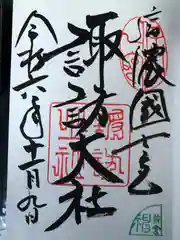 信濃國一之宮
諏訪大社
令和六年十一月九日